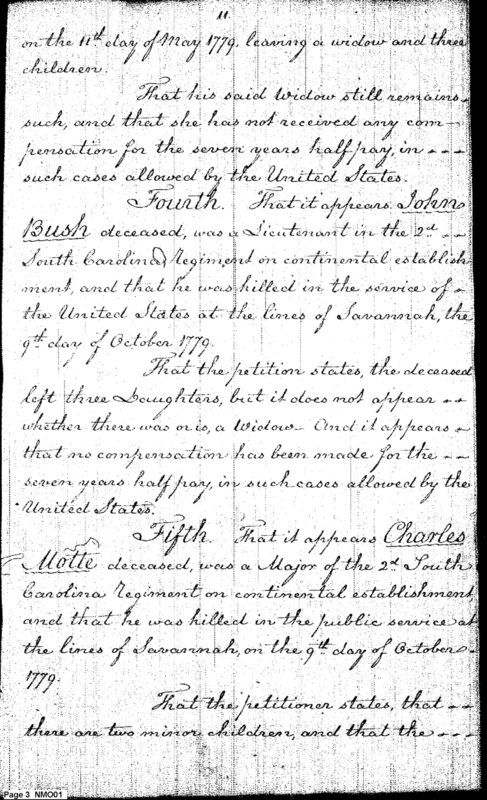 11.
on the 11th day of May 1779. leaving a widow and three
children.
That his said Widow still remains
such, and that she has not received any com-
pensation for the seven years half pay, in - - -
such cases allowed by the United States.
Fourth. That it appears John
Bush deceased, was a Lieutenant in the 2d -
South Carolina Regiment on continental establish-
ment, and that he was killed in the service of -
the United States at the lines of Savannah, the
9th day of October 1779.
That the petition states, the deceased
left three Daughters, but it does not appear - -
whether there was or is, a Widow - And it appears -
that no compensation has been made for the - -
seven years half pay, in such cases allowed by the
United States.
Fifth. That it appears Charles
Motte deceased, was a Major of the 2d South
Carolina Regiment on continental establishment
and that he was killed in the public service at
the lines of Savannah, on the 9th day of October -
1779.
That the petitioner states, that - -
there are two minor children, and that the - - -
Page 3 NMO01